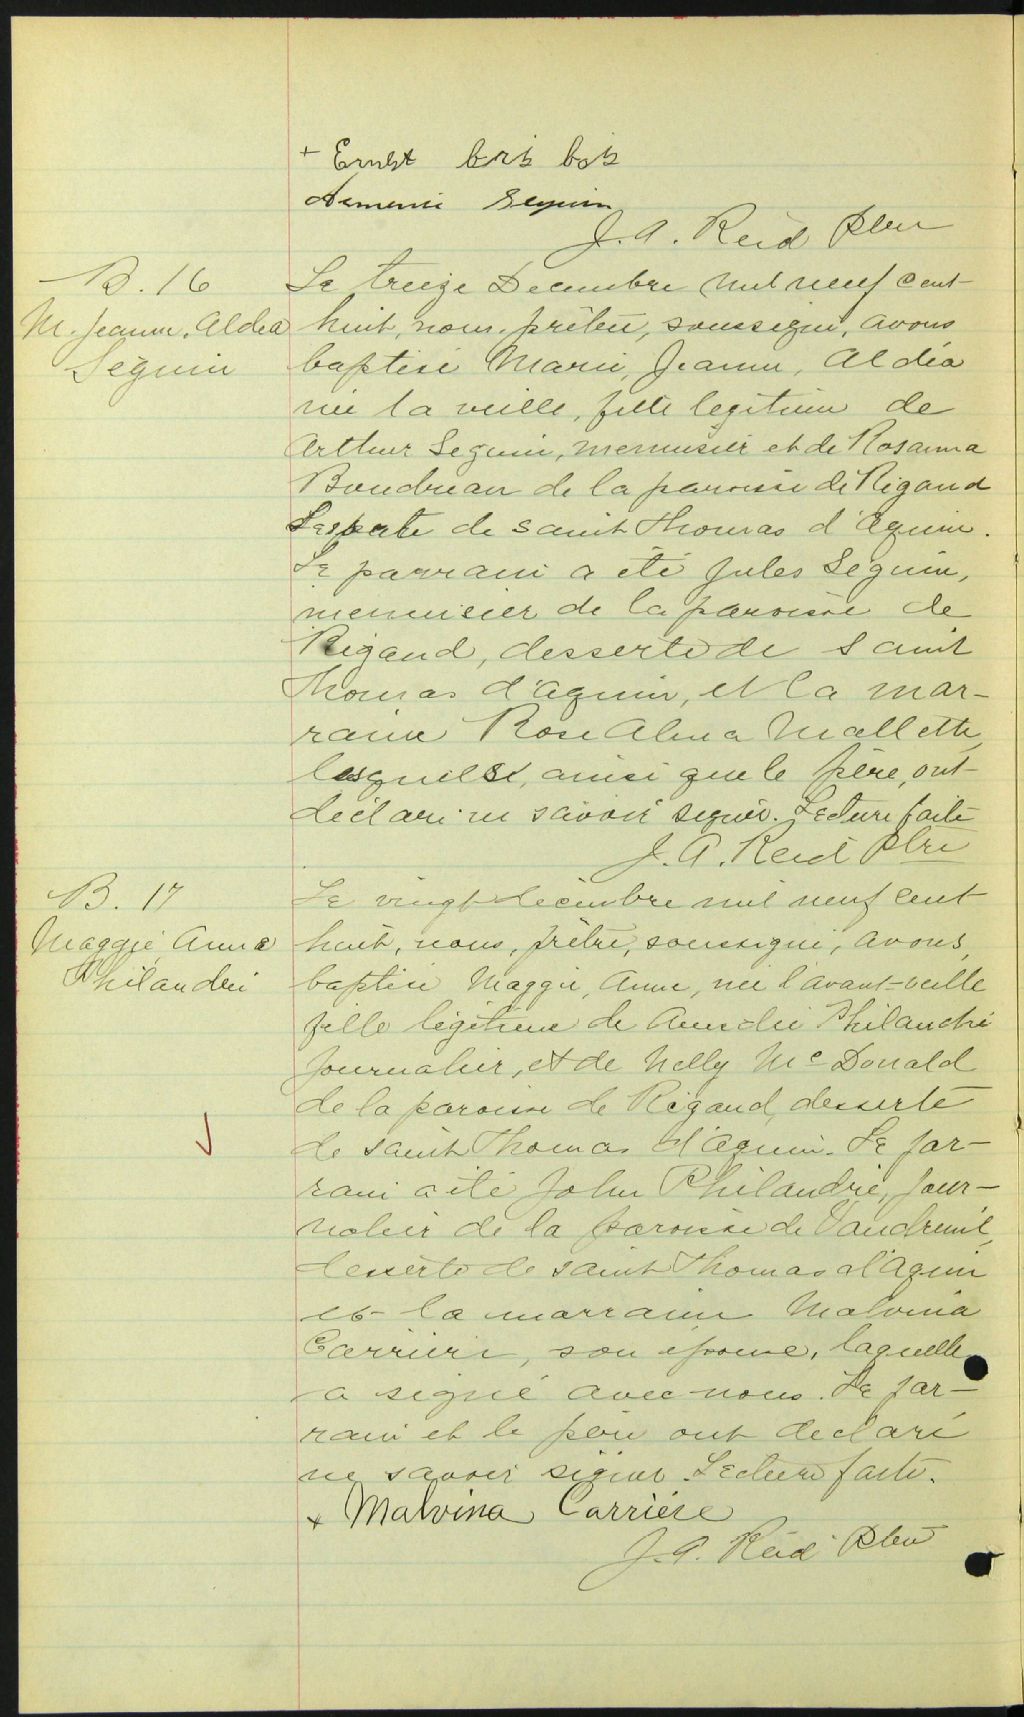 + Ernest
Seguin
J. A. Reid Ptre
B. 16
M. Jeanne, Aldea
Séguin
Le treize Decembre mil neuf cent
huit, nous, prêtre, soussigné, avons
baptisé Marie, Jeanne, Aldéa
née la veille, fille legitime de
Arthur Seguin, menuisier et de Rosanna
Boudreau de la paroisse de Rigaud
Desserte de saint Thomas d'Aquin.
Le parrain a été Jules Séguin,
menuisier de la paroisse de
Rigaud, desserte de saint
Thomas d'Aquin, et la mar-
raine Rose Alma Mallette,
lesquels, ainsi que le père, ont
déclaré ne savoir signer. Lecture faite
J. A. Reid Ptre
B. 17
Maggie, Anna
Philandré
Le vingt décembre mil neuf cent
huit, nous, prêtre, soussigné, avons
baptisé Maggie, Anna, née l'avant-veille
fille légitime de Amédée Philandré
journalier, et de Nelly Mc Donald
de la paroisse de Rigaud, desserte
de saint Thomas d'Aquin. Le par-
rain a été John Philandré, jour-
nalier de la paroisse de Vaudreuil,
desserte de saint Thomas d'Aquin
et la marraine Malvina
Carrière, son épouse, laquelle
a signé avec nous. Le par-
rain et le père ont declaré
ne savoir signer. Lecture faite.
+ Malvina Carrière
J. A. Reid Ptre